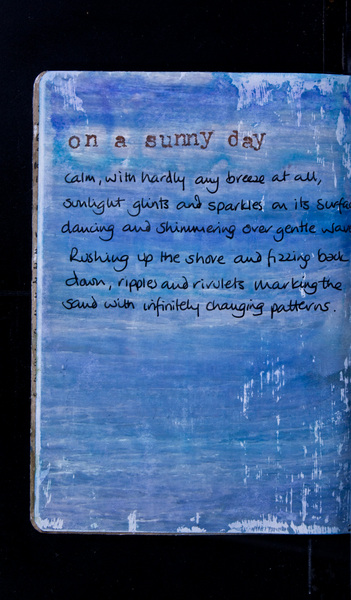 on a sunny day
calm, with hardly any breeze at all,
sunlight glints and sparkles on its surfa
dancing and shimmering over gentle wave
Rushing up the shore and fizzing back
down, ripples and rivulets marking the
sand with infinitely changing patterns.